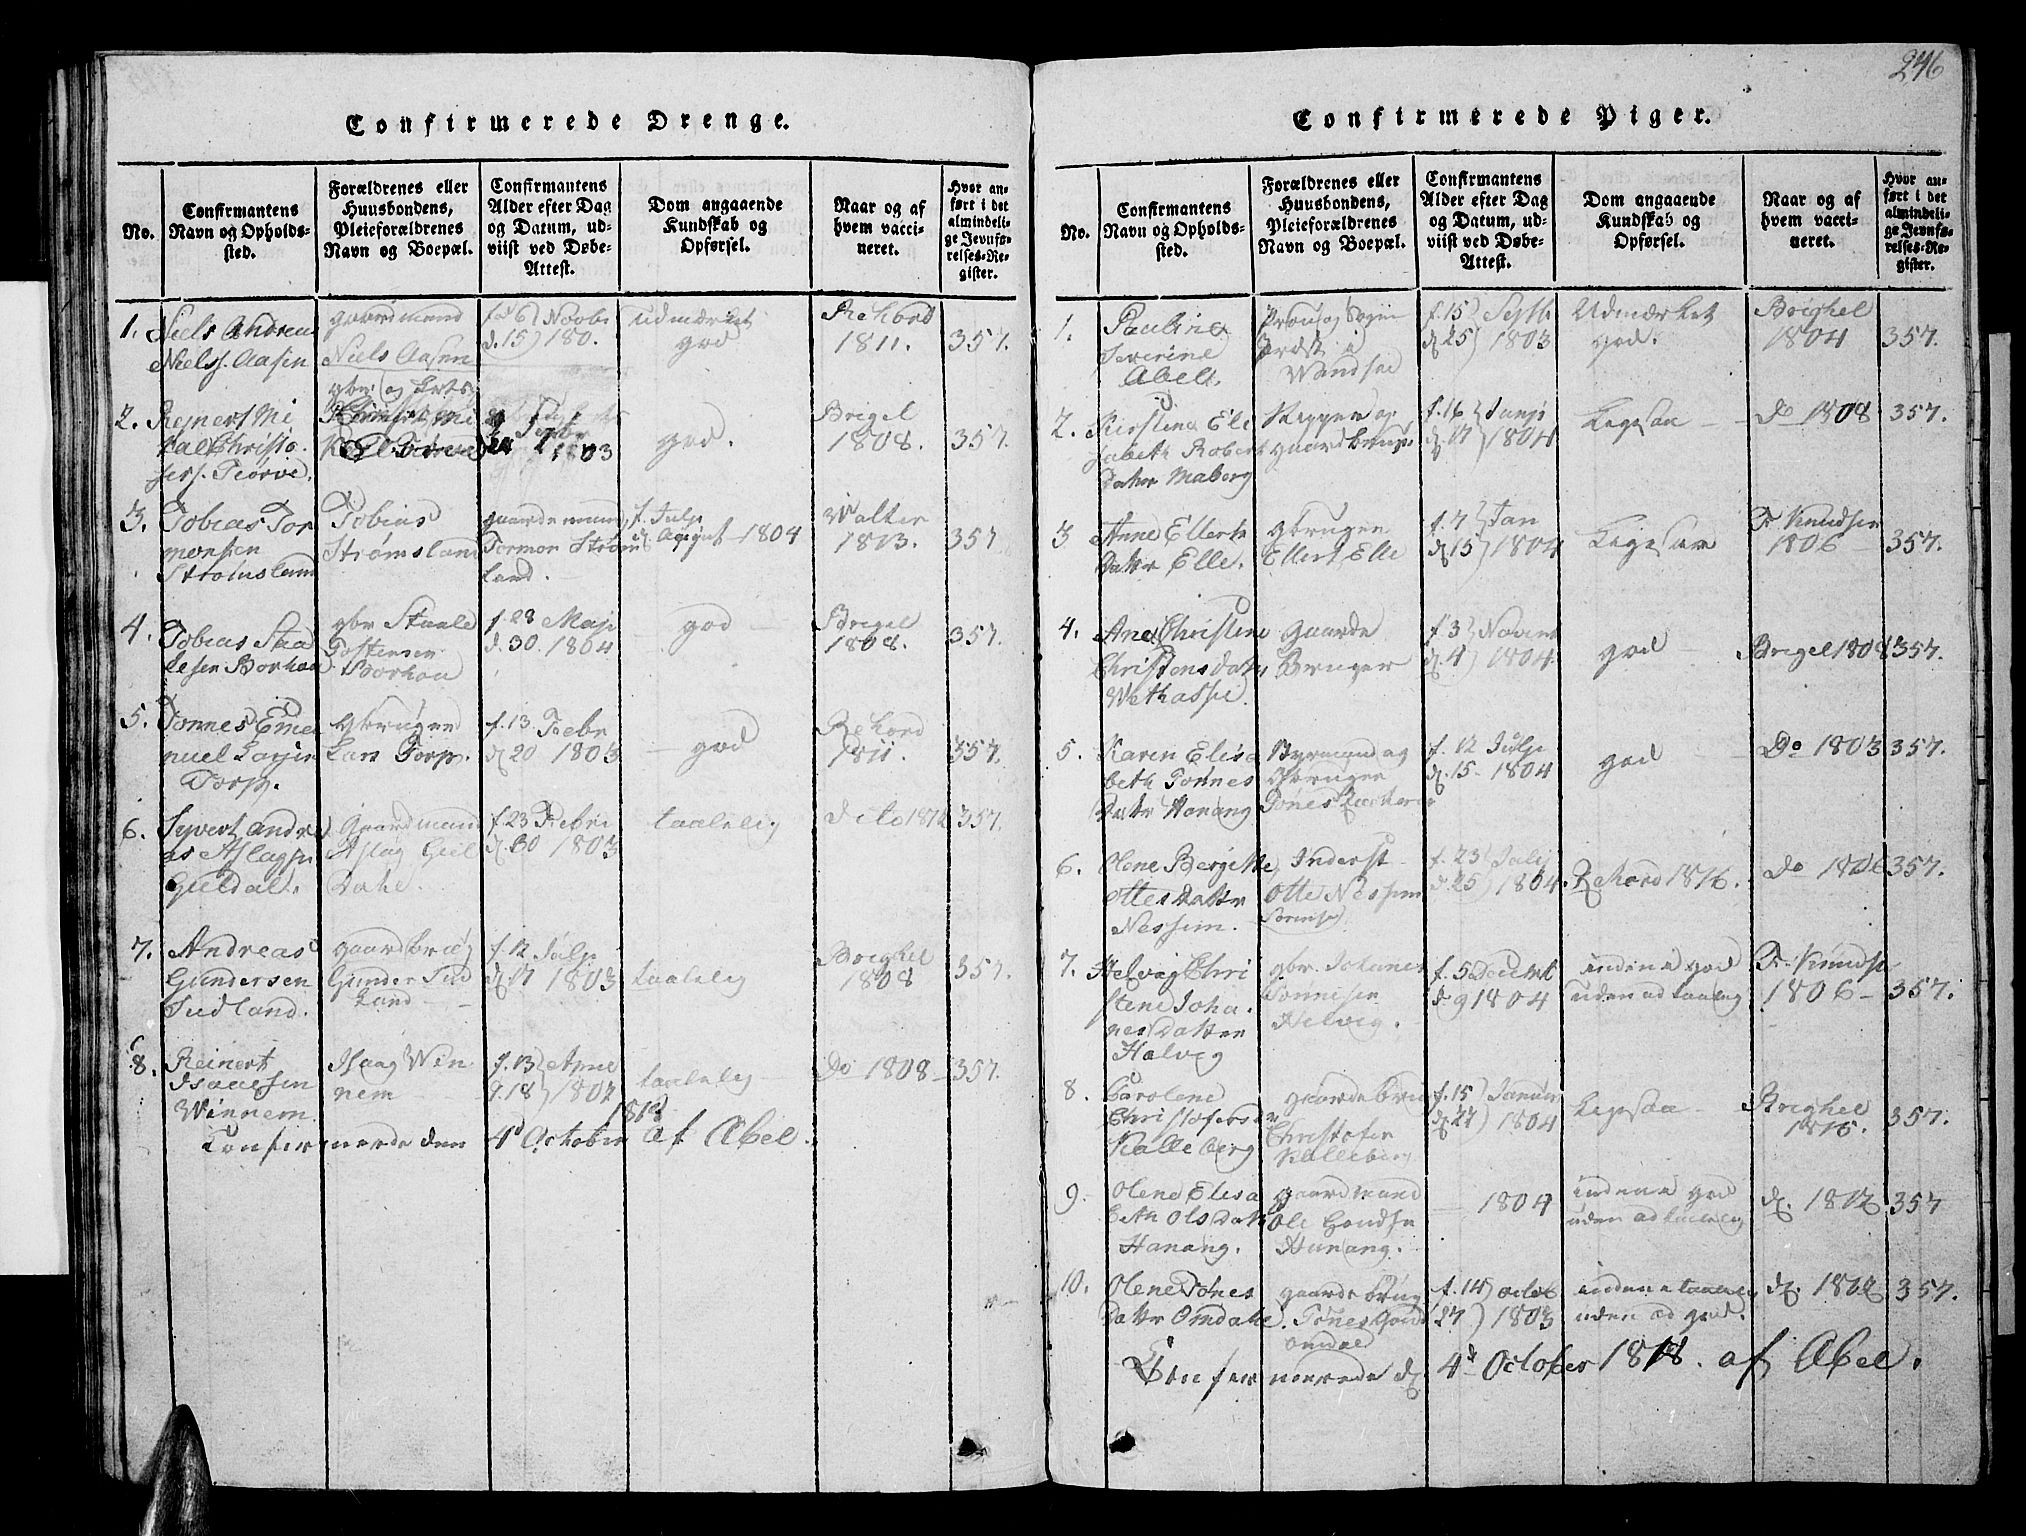 246
Confirmerede Drenge.
No.
Confirmantens
Navn og Opholds-
sted.
Forældrenes eller
Huusbondens,
Pleieforældrenes
Navn og Boepæl.
Confirmantens
Alder efter Dag
og Datum, ud-
viist ved Døbe-
Attest.
Dom angaaende
Kundskab og
Opførsel.
Naar og af
hvem vacci-
neret.
Hvor an-
ført i det
almindeli-
ge Jevnfø-
relses-Re-
gister.
1.
Niels Andreas
Nielss. Aasen
gaardmand
Niels Aasen
d. 15) 180.
udmærket
god
Rekord
1811.
357.
2.
Reinert Mi
kal Christo
fers. Tiorve.
1803
god.
Brigel
1808.
357.
3.
Tobias Tor
monsen
Strømsland
Tobias
Strømsland
gaardemand,
Tormon Strøms
land.
f. Julp
d. August 1804
Walter
1813.
357
4.
Tobias Staa
lesen Borhau
gbr Staale
Tostensen
Borhau
f. 28 Maji
d. 30. 1804
god
Brigel
1808.
357.
5.
Tønnes Eme
nuel Larsen
Torp.
gbruger
Lars Torp.
f. 13. Febr
d 20 1803
god
Rekord
1811.
357.
6.
Syvert Andre
as Aslagsen
Guldal.
Gaardmand
Aslag Gul
Dahe.
f. 23 Febri
d. 30 1803
taalelig
dito 1812
357.
7.
Andreas
Gundersen
Sudland.
gaardbrug
Gunder Sud
land
f. 12 Julp
d 17 1803
taalelig
Brighel
1808
357.
8.
Reinert
Isaacsen
Winnem.
Isaag Win
nem
f. 13) Apriel
d. 18) 1802
taalelig
Do 1808
357.
1818
Confermerede den 4d October af Abel.
Confirmerede Piger.
No.
Confirmantens
Navn og Opholds-
sted.
Forældrenes eller
Huusbondens,
Pleieforældrenes
Navn og Boepæl.
Confirmantens
Alder efter Dag
og Datum, ud-
viist ved Døbe-
Attest.
Dom angaaende
Kundskab og
Opførsel.
Naar og af
hvem vacci-
neret.
Hvor an-
ført i det
almindeli-
ge Jevnfø-
relses-Re-
gister.
1.
Pauline
Severine
Abel.
Prou og Sogne
Præst i
Wandsøe
f. 15) Septb
d 25) 1803
Udmærket
god.
Brighel
1804
357.
2.
Kirstine Eli
sabeth Robert
Datter Maberg
Skipper og
gaardbruger
f. 16) Junji
d 17) 1804
Ligesaa
Do 1808
357.
3
Anne Ellerts
Dattr Elle.
gbruger
Ellert Elle
f. 7) Jan
d 15) 1804
Ligesaa
Fr Knudsen
1806
357.
4.
Ane Christine
Christens dattr
Wethassie
Gaarde
Bruger
f. 3) Novem
d 4) 1804.
god
Brigel 1808
357.
5.
Karen Elisa
beth Tønnes
Dattr Hanang
Styrmand og
Gbruger
Tønes Zacharia
f. 12 Julp
d. 15. 1804
god
Do 1803
357.
6.
Olene Bergitte
Ottes Dattr
Nessim.
Inderst
Otte Nessim
f. 23) Julij
d. 25) 1804.
Rekord 1816.
Do 1806
357.
7.
Helvig Chri
stene Joha
nes Datter
Halvig
gbr. Johanes
Tønnesen
Helvig.
f. 5 Decembr
d 9 1804
inden a god
uden ad taalelig
Fr Knudse
1806
357.
8.
Carolene
Christofersdr
Kalleberg
gaarde bru
Christofer
Kalleberg
f. 15) Januar
d 27) 1804
Ligesaa
Brighel
1815.
357.
9.
Olene Elisa
beth Ols Datt
Hanang.
gaardmand
Ole Gundse
Hunang.
1804
inden a god
uden ad taalelig
d. 1812
357
10.
Olene Tønes
Dattr Omdahl.
gaardebrug
Tønes
Omdal
f. 14) octob
27) 1803
inden a taalelig
uden ad god.
d. 1812
357.
Confermerede d. 4d October 1818. af Abel.